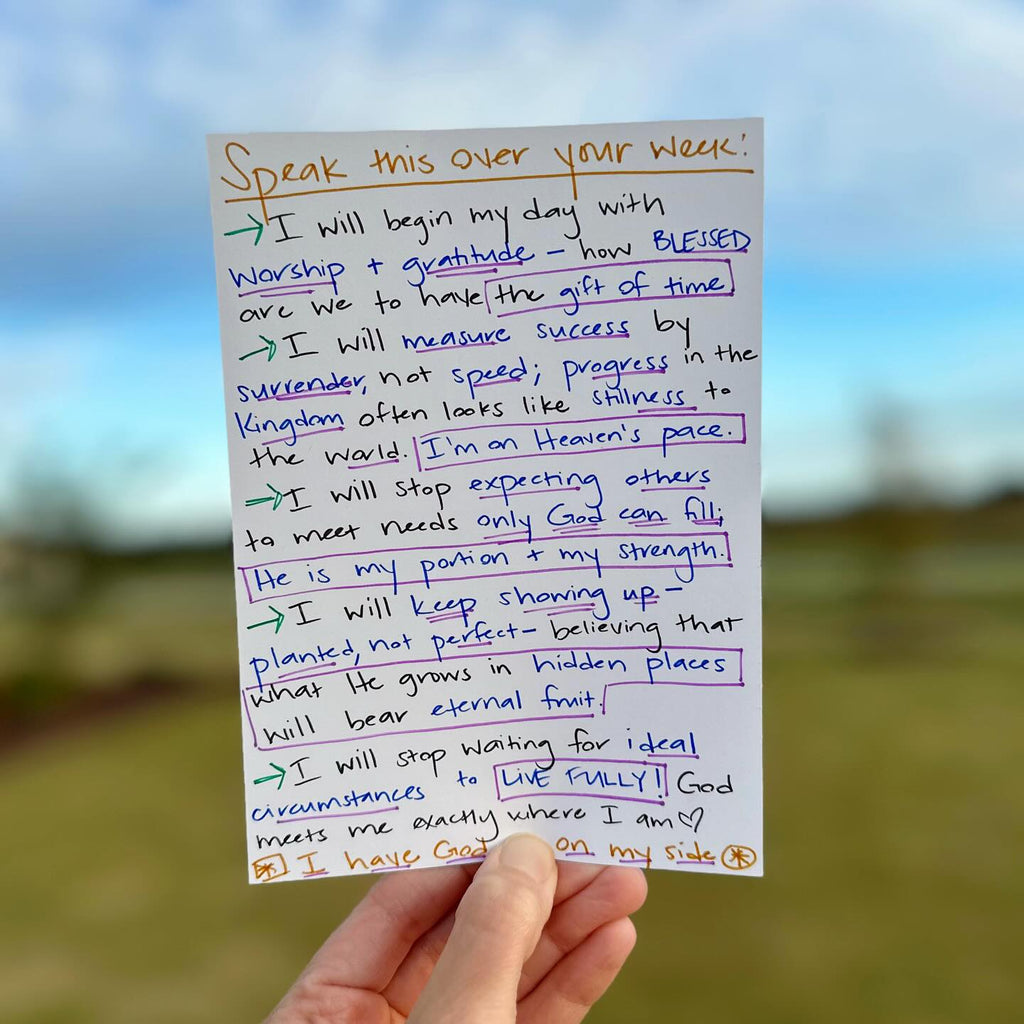 Speak this over your week:
→ I will begin my day with
worship + gratitude – how BLESSED
are we to have the gift of time
→ I will measure success by
surrender, not speed; progress in the
Kingdom often looks like stillness to
the world. I'm on Heaven's pace.
→ I will stop expecting others
to meet needs only God can fill;
He is my portion + my strength.
→ I will keep showing up –
planted, not perfect – believing that
what He grows in hidden places
will bear eternal fruit.
→ I will stop waiting for ideal
circumstances to LIVE FULLY! God
meets me exactly where I am ♡
✱ I have God on my side ✱